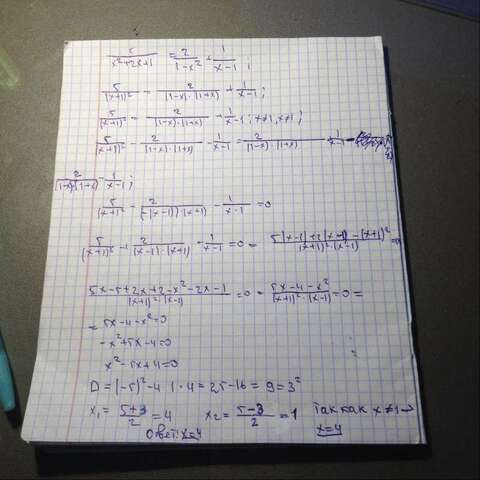 5/(x²+2x+1) = 2/(1-x²) + 1/(x-1) ;
5/(x+1)² = 2/((1-x)·(1+x)) + 1/(x-1) ;
5/(x+1)² = 2/((1-x)·(1+x)) + 1/(x-1) ; x≠1, x≠1 ;
5/(x+1)² - 2/((1-x)·(1+x)) - 1/(x-1) = 2/((1-x)·(1+x)) 1/(x-1) -
2/((1-x)(1+x)) - 1/(x-1) ;
5/(x+1)² - 2/(-(x-1)·(x+1)) - 1/(x-1) = 0
5/(x+1)² + 2/((x-1)·(x+1)) - 1/(x-1) = 0 = (5(x-1)+2(x+1)-(x+1)²)/((x+1)²·(x-1)) = 0
(5x-5+2x+2-x²-2x-1)/((x+1)²·(x-1)) = 0 = (5x-4-x²)/((x+1)²·(x-1)) = 0 =
= 5x-4-x²=0
-x²+5x-4=0
x²-5x+4=0
D = (-5)²-4·1·4 = 25-16 = 9 = 3²
x₁ = (5+3)/2 = 4 x₂ = (5-3)/2 = 1 Так как x≠1 →
x=4
Ответ: x=4